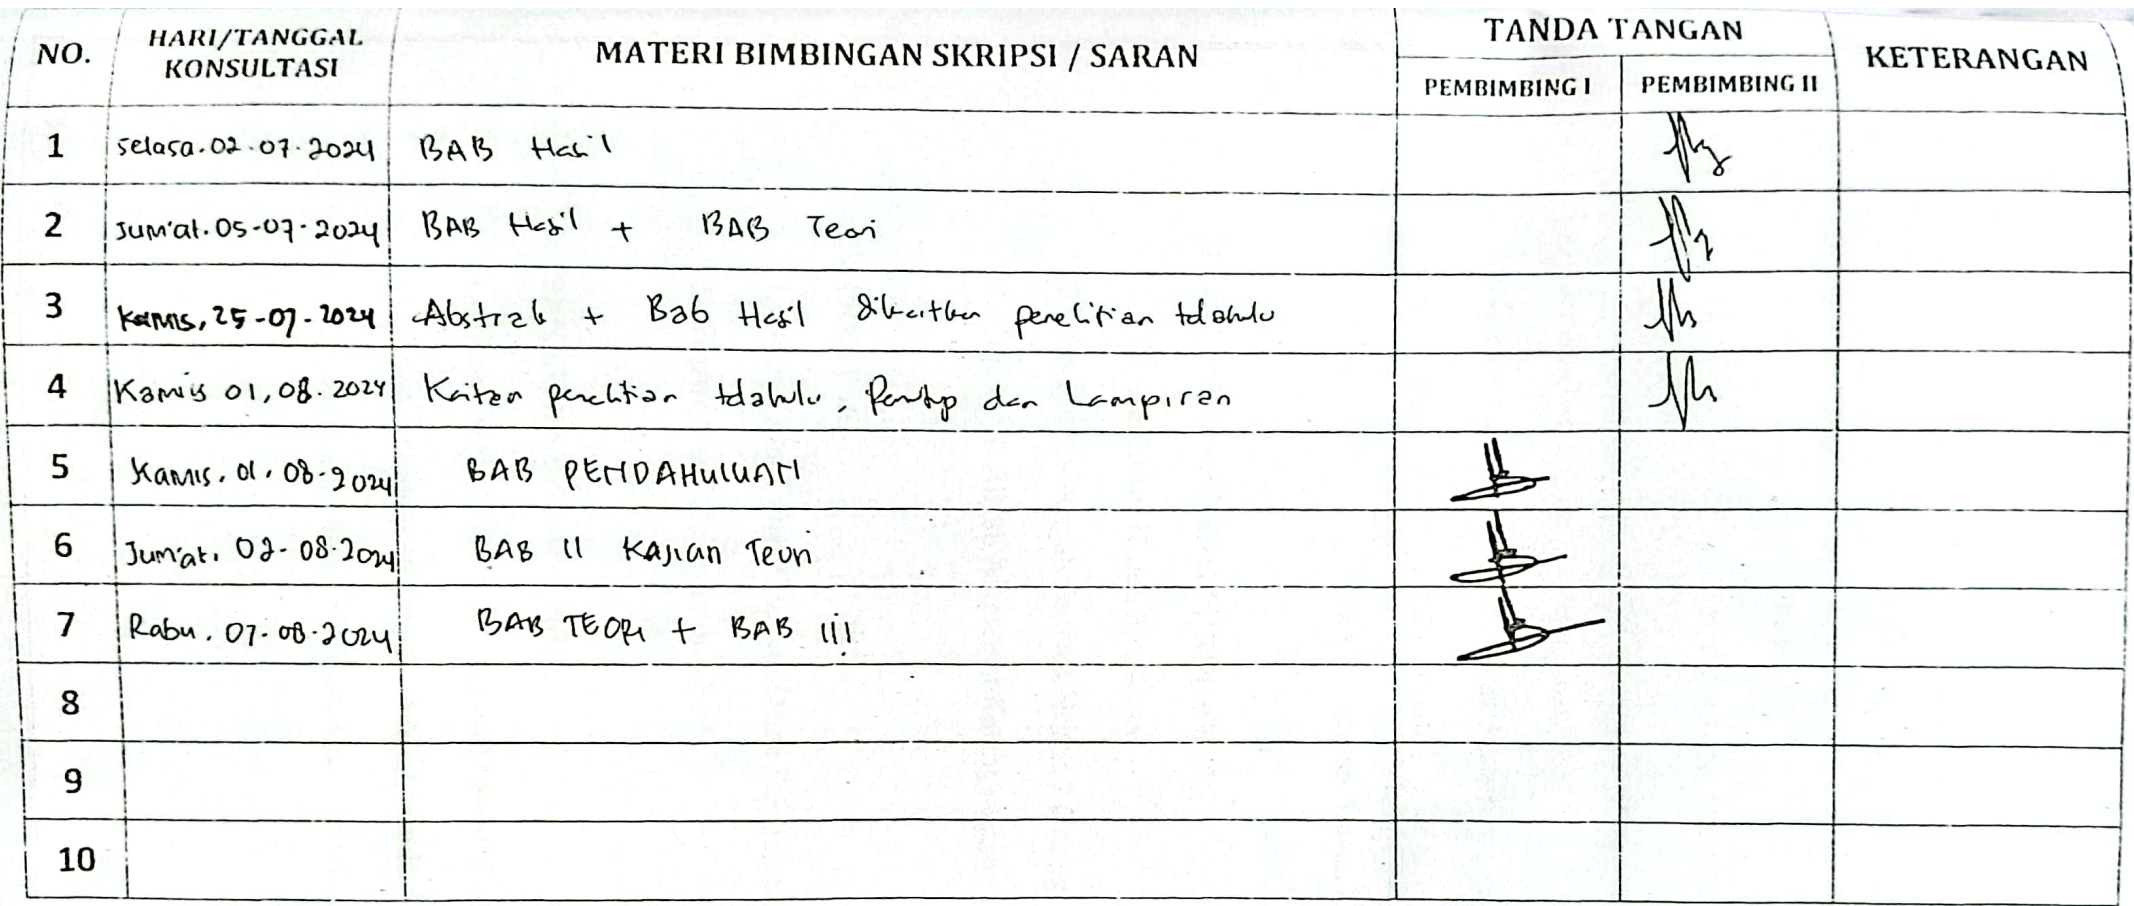 NO. HARI/TANGGAL KONSULTASI MATERI BIMBINGAN SKRIPSI / SARAN TANDA TANGAN KETERANGAN
PEMBIMBING I PEMBIMBING II
1 Selasa. 02-07-2024 BAB Hasil
2 Jum'at. 05-07-2024 BAB Hasil + BAB Teori
3 Kamis, 25-07-2024 Abstrak + Bab Hasil dikaitkan penelitian tdahulu
4 Kamis 01, 08. 2024 Kaitan penelitian tdahulu, Penutup dan Lampiran
5 Kamis. 01. 08-2024 BAB PENDAHULUAN
6 Jum'at. 02-08-2024 BAB II Kajian Teori
7 Rabu. 07-08-2024 BAB TEORI + BAB III
8
9
10